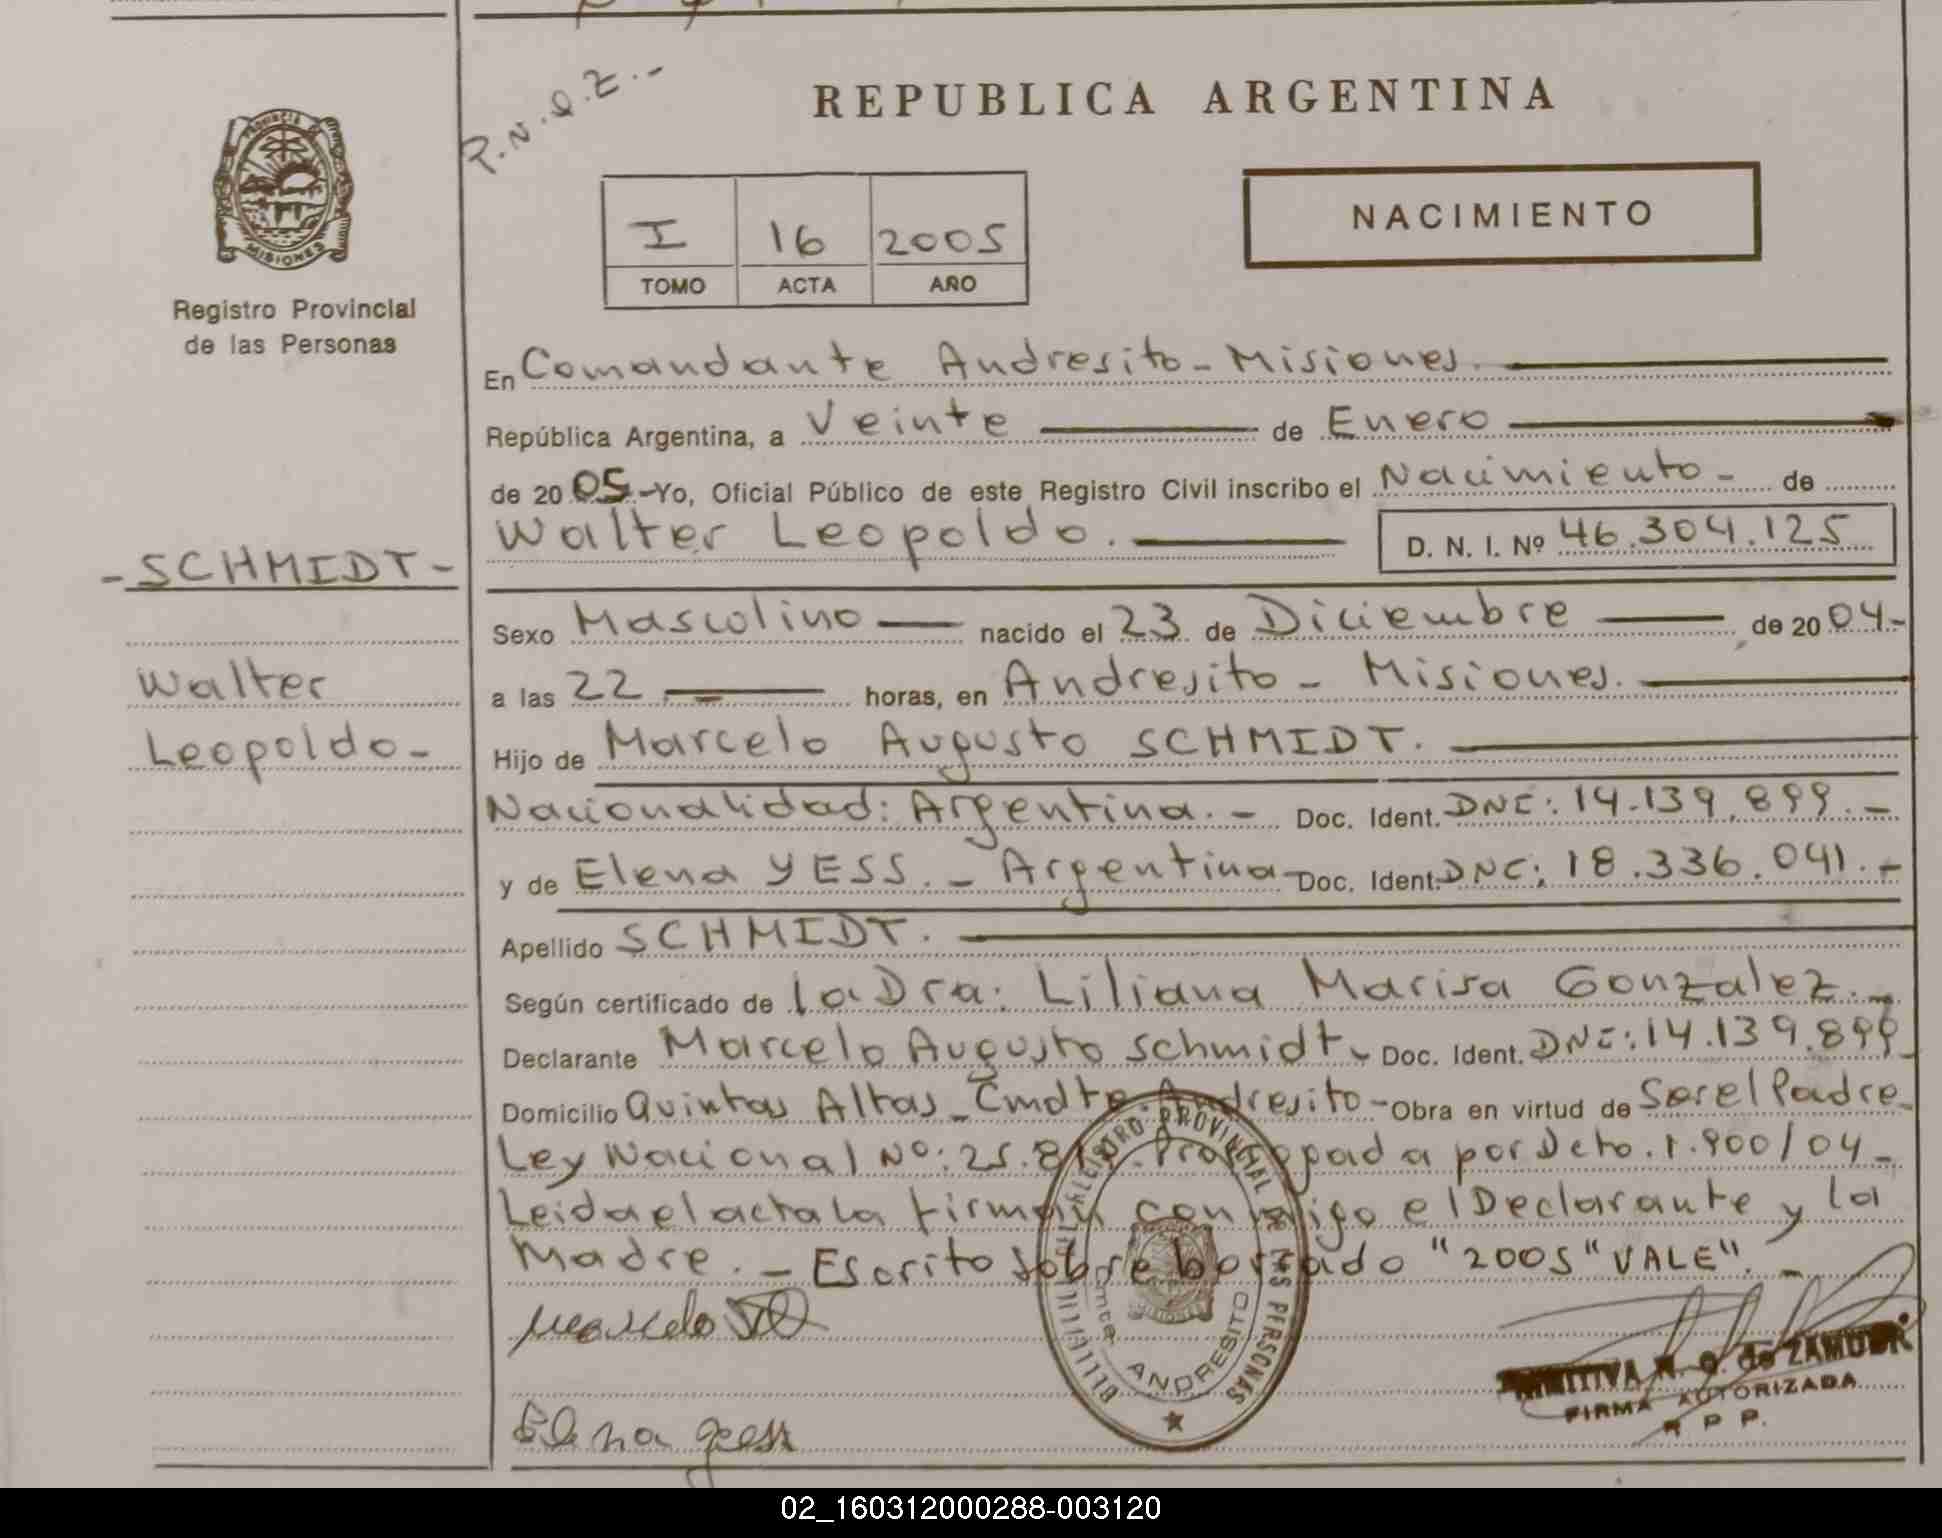 P.N.Q.Z.-
REPUBLICA ARGENTINA
PROVINCIA DE MISIONES
Registro Provincial
de las Personas
I 16 2005
TOMO ACTA AÑO
NACIMIENTO
En Comandante Andresito - Misiones.
República Argentina, a Veinte de Enero
de 20 05 - Yo, Oficial Público de este Registro Civil inscribo el Nacimiento - de
Walter Leopoldo. D. N. I. Nº 46.304.125
- SCHMIDT -
Walter
Leopoldo -
Sexo Masculino nacido el 23 de Diciembre de 20 04.-
a las 22 horas, en Andresito - Misiones.
Hijo de Marcelo Augusto SCHMIDT.
Nacionalidad: Argentina. - Doc. Ident. DNI: 14.139.899.-
y de Elena YESS. - Argentina - Doc. Ident. DNI: 18.336.041.-
Apellido SCHMIDT.
Según certificado de la Dra: Liliana Marisa Gonzalez.-
Declarante Marcelo Augusto Schmidt - Doc. Ident. DNI: 14.139.899
Domicilio Quintas Altas - Cmdte. Andresito - Obra en virtud de Ser el Padre -
Ley Nacional Nº: 25.819 - Prorrogada por Dcto. 1.900/04 -
Leida el acta la firman conmigo el Declarante y la
Madre. - Escrito sobre borrado "2005" VALE". -
REGISTRO PROVINCIAL DE LAS PERSONAS
Cmte. ANDRESITO
Elena yess
N. G. de ZAMUDIO
FIRMA AUTORIZADA
R P P.
02_160312000288-003120